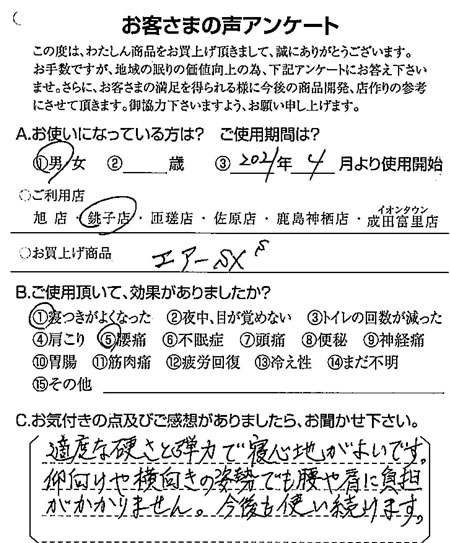 お客さまの声アンケート
この度は、わたしん商品をお買上げ頂きまして、誠にありがとうございます。
お手数ですが、地域の眠りの価値向上の為、下記アンケートにお答え下さい
ませ。さらに、お客さまの満足を得られる様に今後の商品開発、店作りの参考
にさせて頂きます。御協力下さいますよう、お願い申し上げます。
A.お使いになっている方は? ご使用期間は?
①男/女 ②___歳 ③2021年4月より使用開始
○ご利用店
イオンタウン
旭店・銚子店・匝瑳店・佐原店・鹿島神栖店・成田富里店
○お買上げ商品 エアーSX S
B.ご使用頂いて、効果がありましたか?
①寝つきがよくなった ②夜中、目が覚めない ③トイレの回数が減った
④肩こり ⑤腰痛 ⑥不眠症 ⑦頭痛 ⑧便秘 ⑨神経痛
⑩胃腸 ⑪筋肉痛 ⑫疲労回復 ⑬冷え性 ⑭まだ不明
⑮その他
C.お気付きの点及びご感想がありましたら、お聞かせ下さい。
適度な硬さと弾力で寝心地がよいです。
仰向けや横向きの姿勢でも腰や肩に負担
がかかりません。今後も使い続けます。